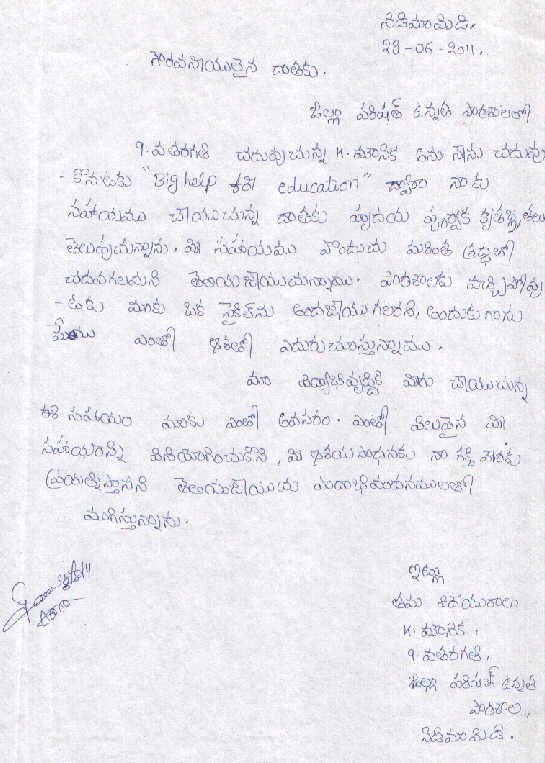 నిడిమామిడి.
28-06-2011.
గౌరవనీయులైన దాతకు.
జిల్లా పరిషత్ ఉన్నత పాఠశాలలో
9.వతరగతి చదువుచున్న K. మౌనిక అను నేను చదువు
- కొనుటకు "Big help for education" ద్వారా నాకు
సహాయము చేయుచున్న దాతకు హృదయ పూర్వక కృతజ్ఞతలు
తెలుపుచున్నాను. మీ సహాయము పొందుచు మరింత శ్రద్ధతో
చదవగలమని తెలియజేయుచున్నాము. పాఠశాలకు వచ్చిపోవు
- టకు మాకు ఒక సైకిల్‌ను అందజేయగలరని, అందుకుగాను
మేము ఎంతో ఆశతో ఎదురుచూస్తున్నాము.
మా విద్యాభివృద్ధికి మీరు చేయుచున్న
ఈ సహాయం మాకు ఎంతో అవసరం. ఎంతో విలువైన మీ
సహాయాన్ని వినియోగించుకొని, మీ ఆశయ సాధనకు నా శక్తి మేరకు
ప్రయత్నిస్తానని తెలియజేయుచు వందాభివందనములతో
ముగిస్తున్నాను.
ఇట్లు
తమ విధేయురాలు
K. మౌనిక,
9.వతరగతి,
జిల్లా పరిషత్ ఉన్నత
పాఠశాల,
నిడిమామిడి.